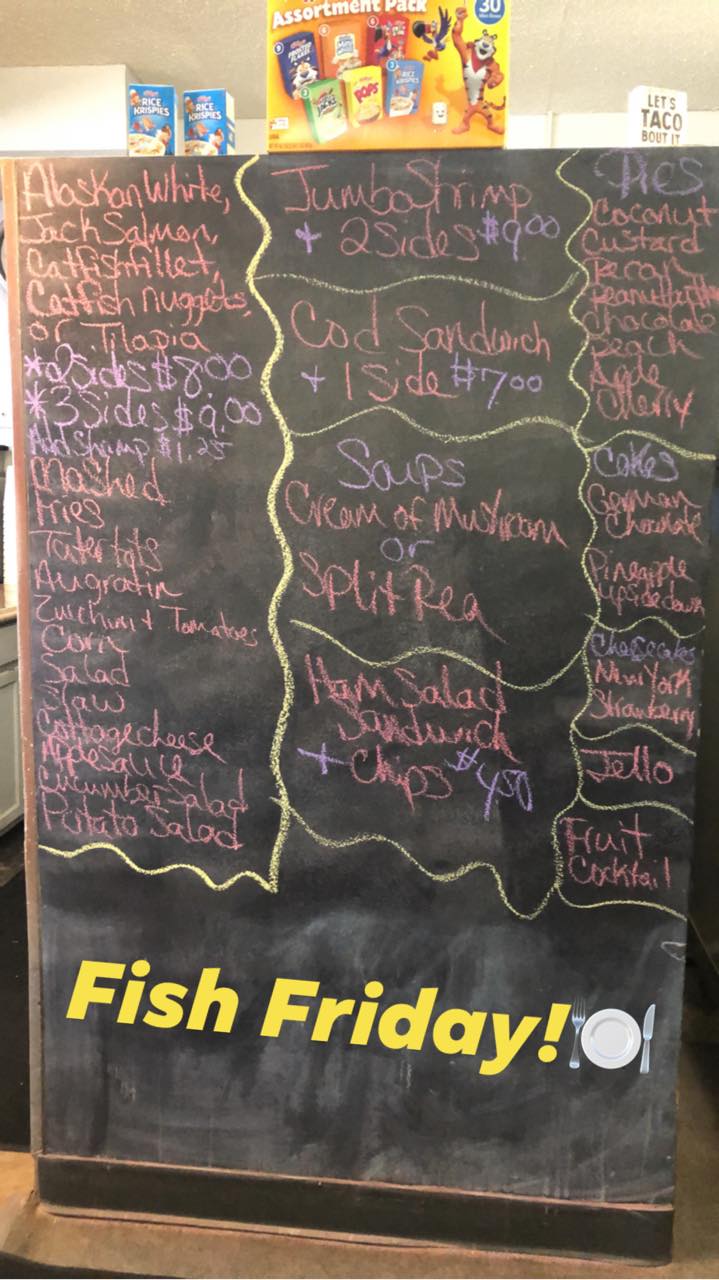 Assortment Pack
30
RICE KRISPIES
RICE KRISPIES
LET'S
TACO
BOUT IT
Alaskan White,
Jack Salmon,
Catfish fillet,
Catfish nuggets,
or Tilapia
*2 Sides $8.00
*3 Sides $9.00
Add Shrimp $1.25
Mashed
Fries
Tater tots
Augratin
Zucchini + Tomatoes
Corn
Salad
Slaw
Cottage cheese
Applesauce
Cucumber Salad
Potato Salad
Jumbo Shrimp
+ 2 Sides $9.00
Cod Sandwich
+ 1 Side $7.00
Soups
Cream of Mushroom
or
Split Pea
Ham Salad
Sandwich
+ Chips $4.50
Pies
Coconut
Custard
Pecan
Peanut butter
Chocolate
Peach
Apple
Cherry
Cakes
German
Chocolate
Pineapple
upside down
Cheesecakes
New York
Strawberry
Jello
Fruit
Cocktail
Fish Friday!